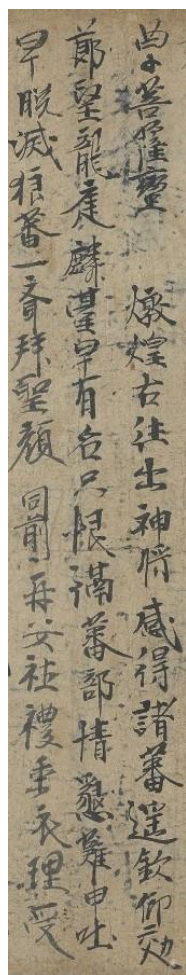 曲子菩薩蠻 燉煌古往出神將感得諸蕃遥欽仰効
節望龍庭麟臺早有名只恨隔蕃部情懇難申吐
早晚滅狼蕃一齊拜聖顔 同前 再安社禮垂衣理受